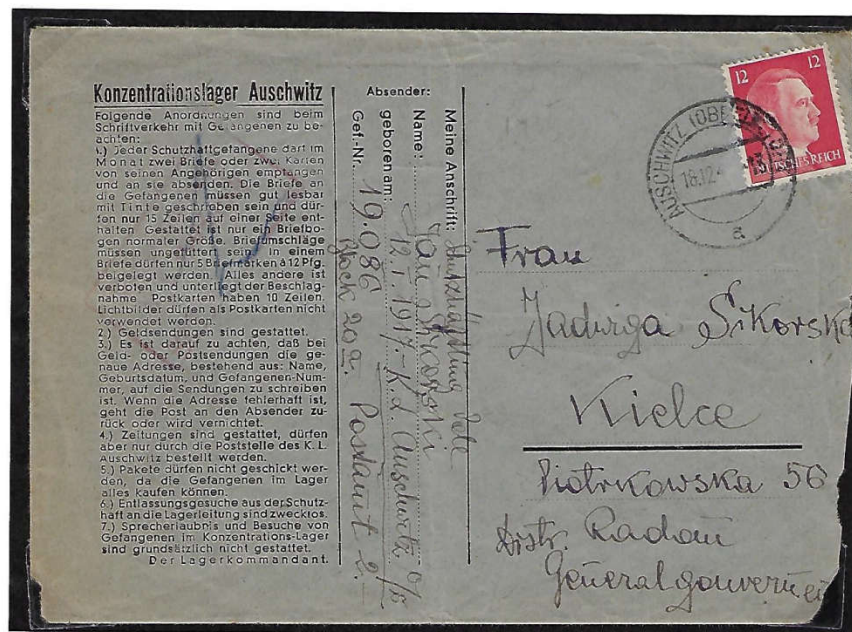 Konzentrationslager Auschwitz
Folgende Anordnungen sind beim
Schriftverkehr mit Gefangenen zu be-
achten:
1.) Jeder Schutzhaftgefangene darf im
Monat zwei Briefe oder zwei Karten
von seinen Angehörigen empfangen
und an sie absenden. Die Briefe an
die Gefangenen müssen gut lesbar
mit Tinte geschrieben sein und dür-
fen nur 15 Zeilen auf einer Seite ent-
halten. Gestattet ist nur ein Briefbo-
gen normaler Größe. Briefumschläge
müssen ungefüttert sein. In einem
Briefe dürfen nur 5 Briefmarken à 12 Pfg.
beigelegt werden. Alles andere ist
verboten und unterliegt der Beschlag-
nahme. Postkarten haben 10 Zeilen.
Lichtbilder dürfen als Postkarten nicht
verwendet werden.
2.) Geldsendungen sind gestattet.
3.) Es ist darauf zu achten, daß bei
Geld- oder Postsendungen die ge-
naue Adresse, bestehend aus: Name,
Geburtsdatum, und Gefangenen-Num-
mer, auf die Sendungen zu schreiben
ist. Wenn die Adresse fehlerhaft ist,
geht die Post an den Absender zu-
rück oder wird vernichtet.
4.) Zeitungen sind gestattet, dürfen
aber nur durch die Poststelle des K. L.
Auschwitz bestellt werden.
5.) Pakete dürfen nicht geschickt wer-
den, da die Gefangenen im Lager
alles kaufen können.
6.) Entlassungsgesuche aus der Schutz-
haft an die Lagerleitung sind zwecklos.
7.) Sprecherlaubnis und Besuche von
Gefangenen im Konzentrations-Lager
sind grundsätzlich nicht gestattet.
Der Lagerkommandant.
Absender:
Meine Anschrift:
Name: Jan
geboren am: 12.I.1917 - K.L. Auschwitz O/S
Gef.-Nr. 19.086
Block 20a. Postamt 2.
12 12
DEUTSCHES REICH
AUSCHWITZ (OBERSCHLES)
18.12.
a
Frau
Jadwiga Sikorska
Kielce
Piotrkowska 56
Distr. Radom
Generalgouvernem